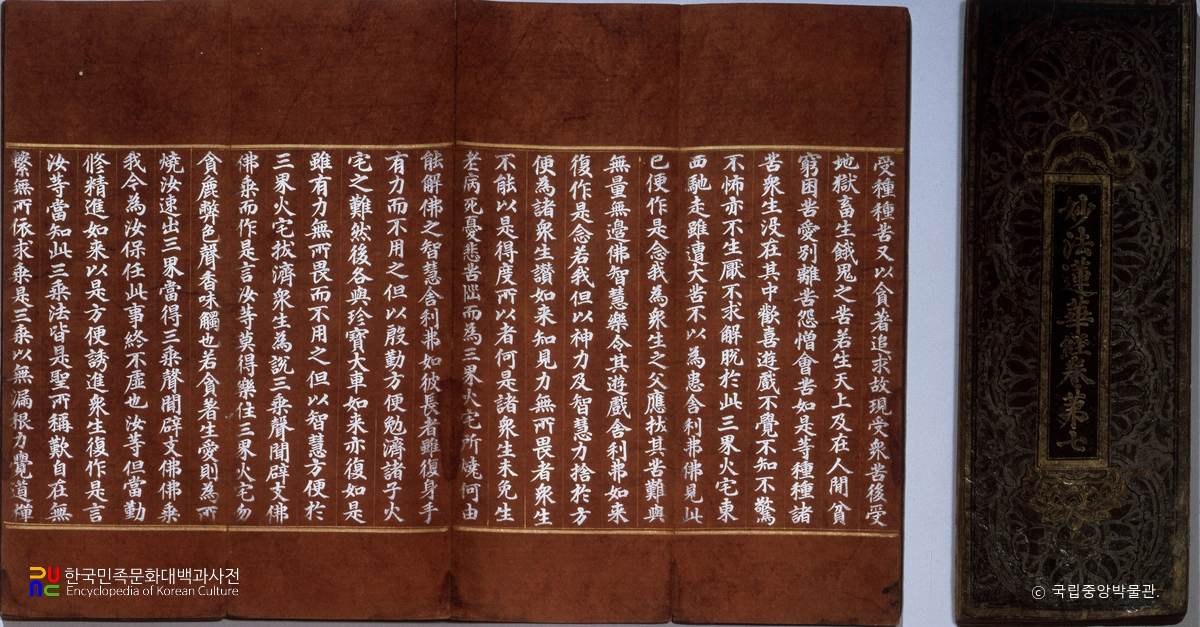 受種種苦又以貪著追求故現受衆苦後受
地獄畜生餓鬼之苦若生天上及在人間貧
窮困苦愛別離苦怨憎會苦如是等種種諸
苦衆生没在其中歡喜遊戲不覺不知不驚
不怖亦不生厭不求解脫於此三界火宅東
西馳走雖遭大苦不以為患舍利弗佛見此
已便作是念我為衆生之父應拔其苦難與
無量無邊佛智慧樂令其遊戲舍利弗如来
復作是念若我但以神力及智慧力捨於方
便為諸衆生讃如来知見力無所畏者衆生
不能以是得度所以者何是諸衆生未免生
老病死憂悲苦惱而為三界火宅所燒何由
能解佛之智慧舍利弗如彼長者雖復身手
有力而不用之但以殷勤方便勉濟諸子火
宅之難然後各與珍寶大車如来亦復如是
雖有力無所畏而不用之但以智慧方便於
三界火宅拔濟衆生為說三乘聲聞辟支佛
佛乘而作是言汝等莫得樂住三界火宅勿
貪麁弊色聲香味觸也若貪著生愛則為所
燒汝速出三界當得三乘聲聞辟支佛佛乘
我今為汝保任此事終不虛也汝等但當勤
修精進如来以是方便誘進衆生復作是言
汝等當知此三乘法皆是聖所稱歎自在無
繫無所依求乘是三乘以無漏根力覺道禪
妙法蓮華經卷第七
한국민족문화대백과사전
Encyclopedia of Korean Culture
© 국립중앙박물관.